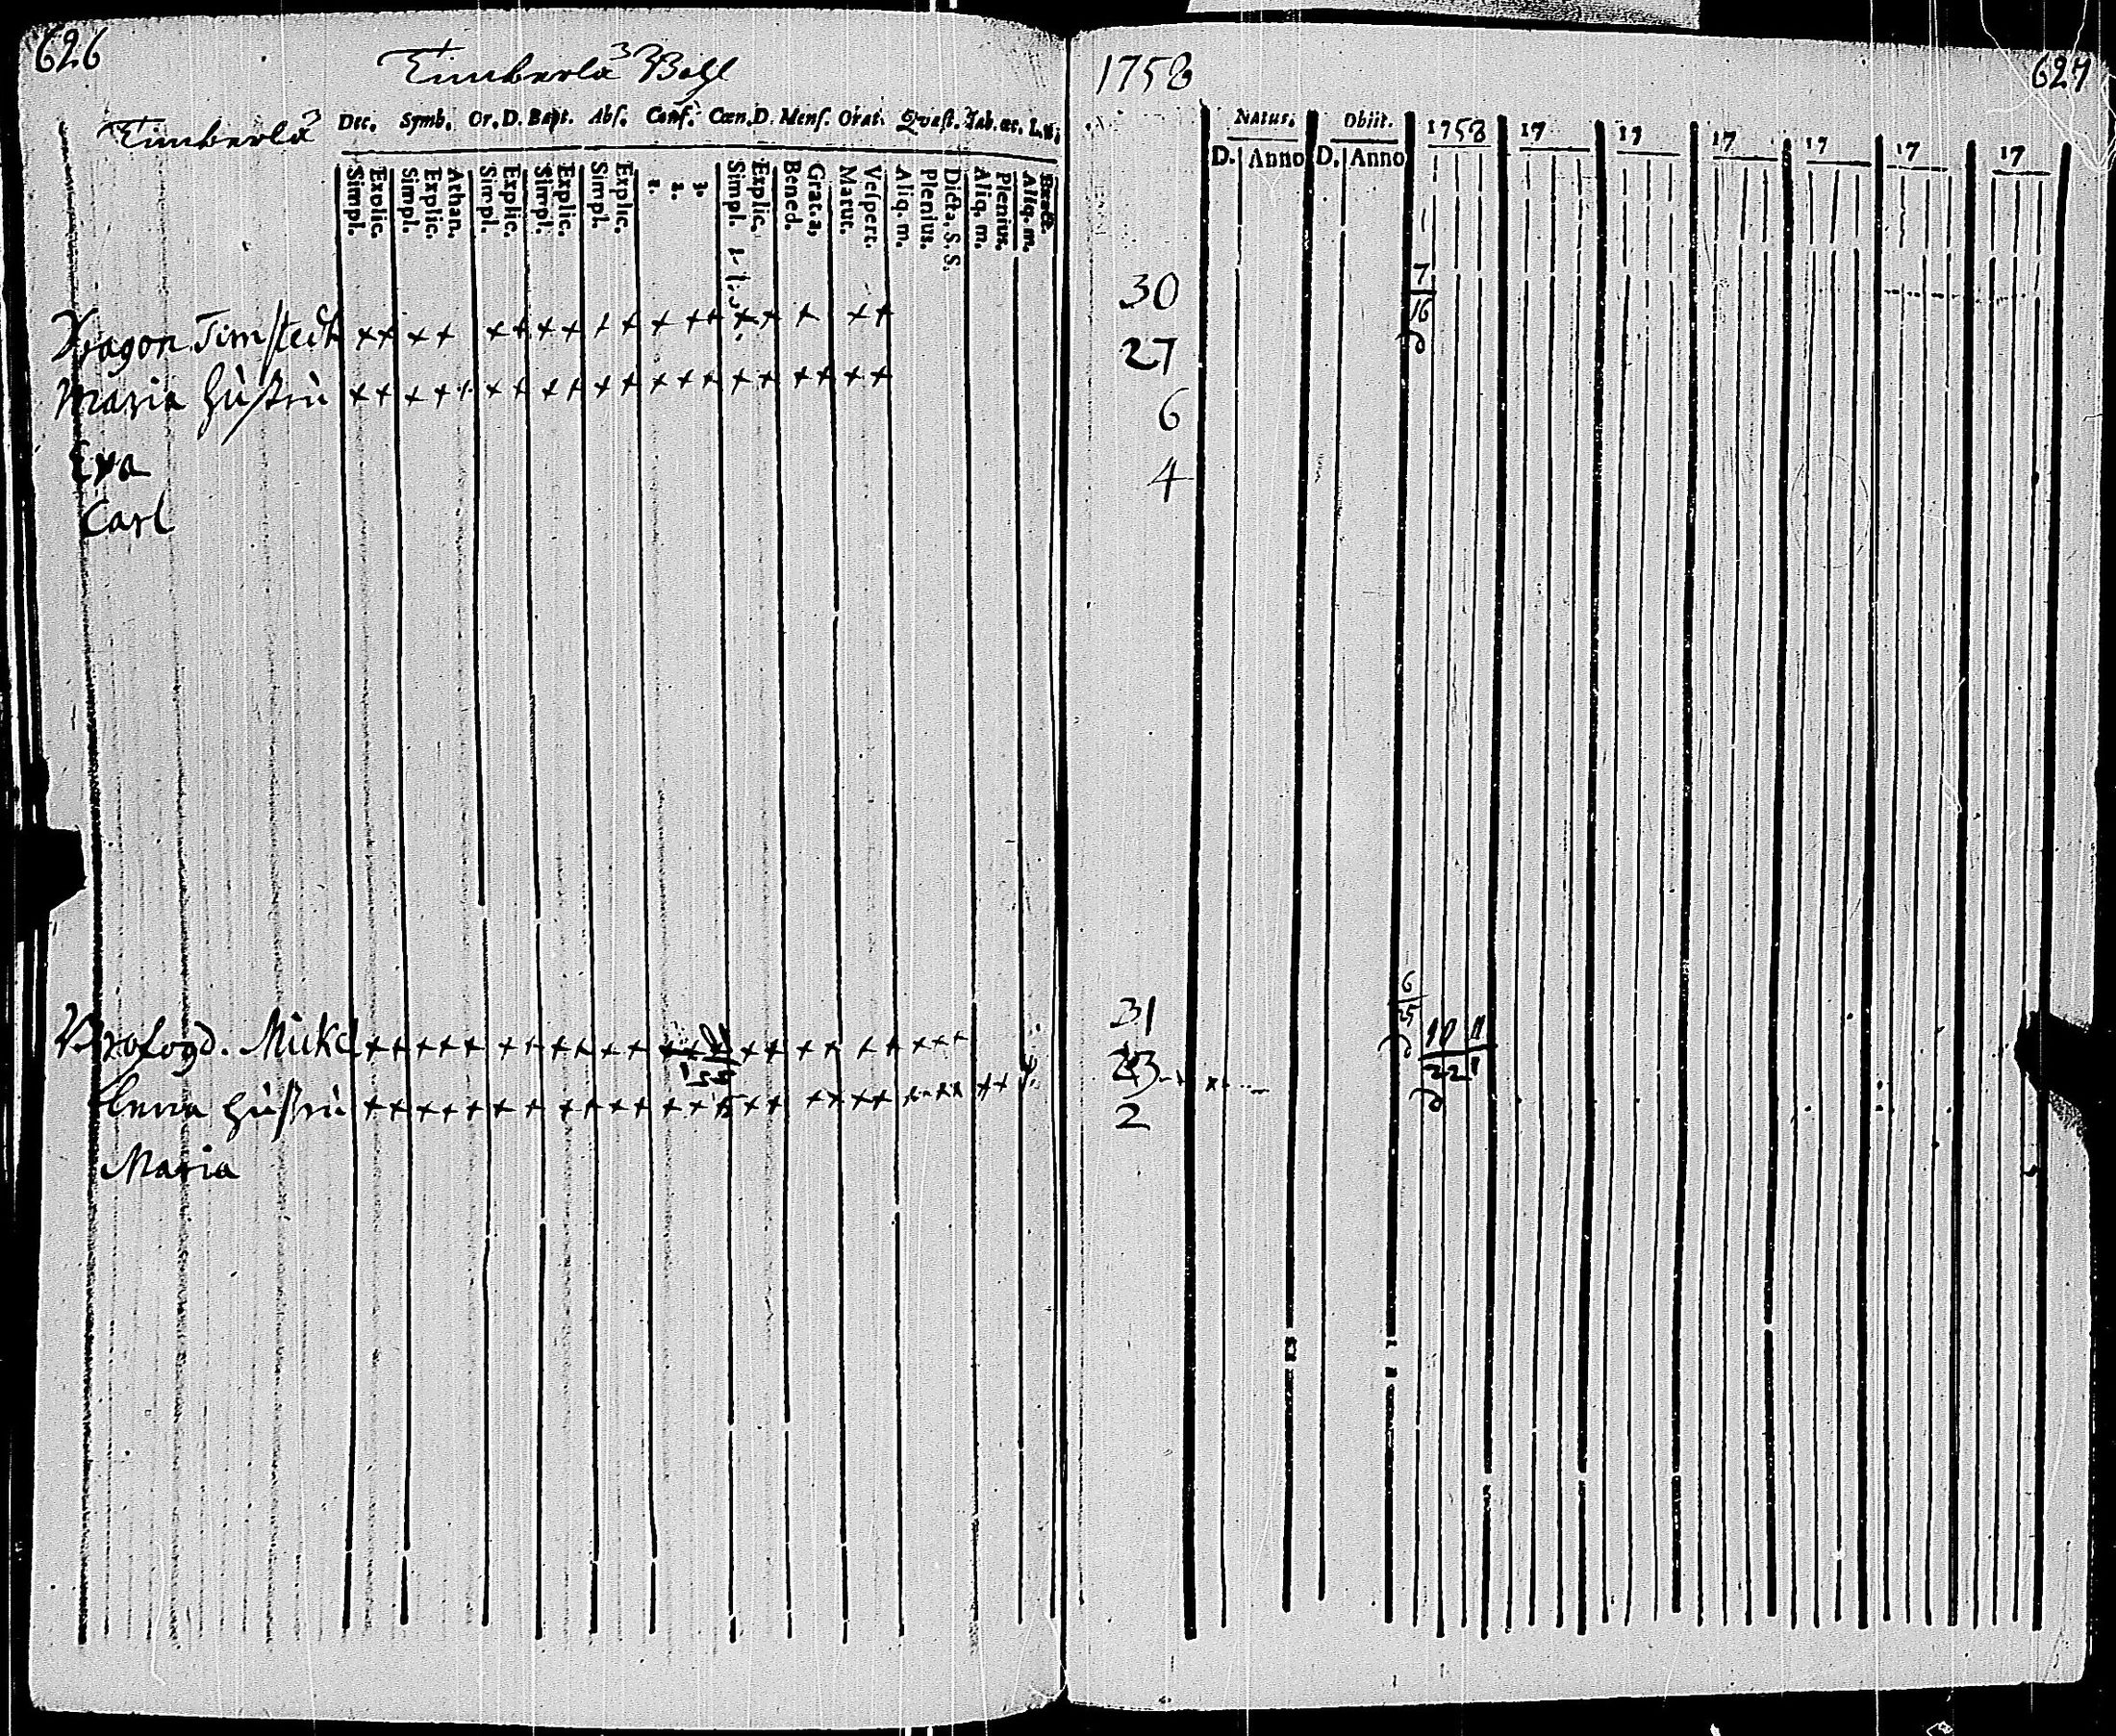 626
Timberla Bohl
Timberla
Dec. Symb. Or. D. Bapt. Abs. Conf. Cœn. D. Mens. Orat. Quæst. Tab. œc. L. v.
Simpl. Explic. Simpl. Explic. Athan. Simpl. Explic. Simpl. Explic. Simpl. Explic. 1. 2. 3. Simpl. Explic. Bened. Grat. a. Matut. Vespert. Aliq. m. Plenius. Dicta. S. S. Aliq. m. Plenius. Aliq. m. Exacte.
Dragon Timstedt
Maria hustru
Eva
Carl
Profogd. Mickel
hustru
Maria
1758
627
Natus. Obiit. 1758 17 17 17 17 17 17
D. Anno D. Anno
30
7
16
27
6
4
31
6
23
22
2